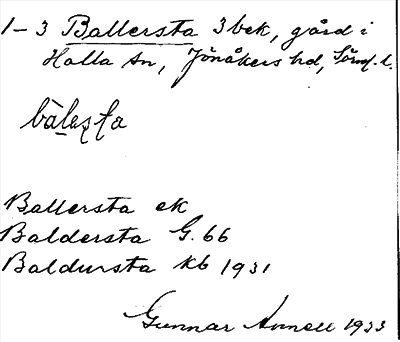 1-3 Ballersta 3 bek, gård i
Halla sn, Jönåkers hd, Söml. l.
Ballersta ek
Baldersta G. 66
Baldursta kb 1931
Gunnar Annell 1933